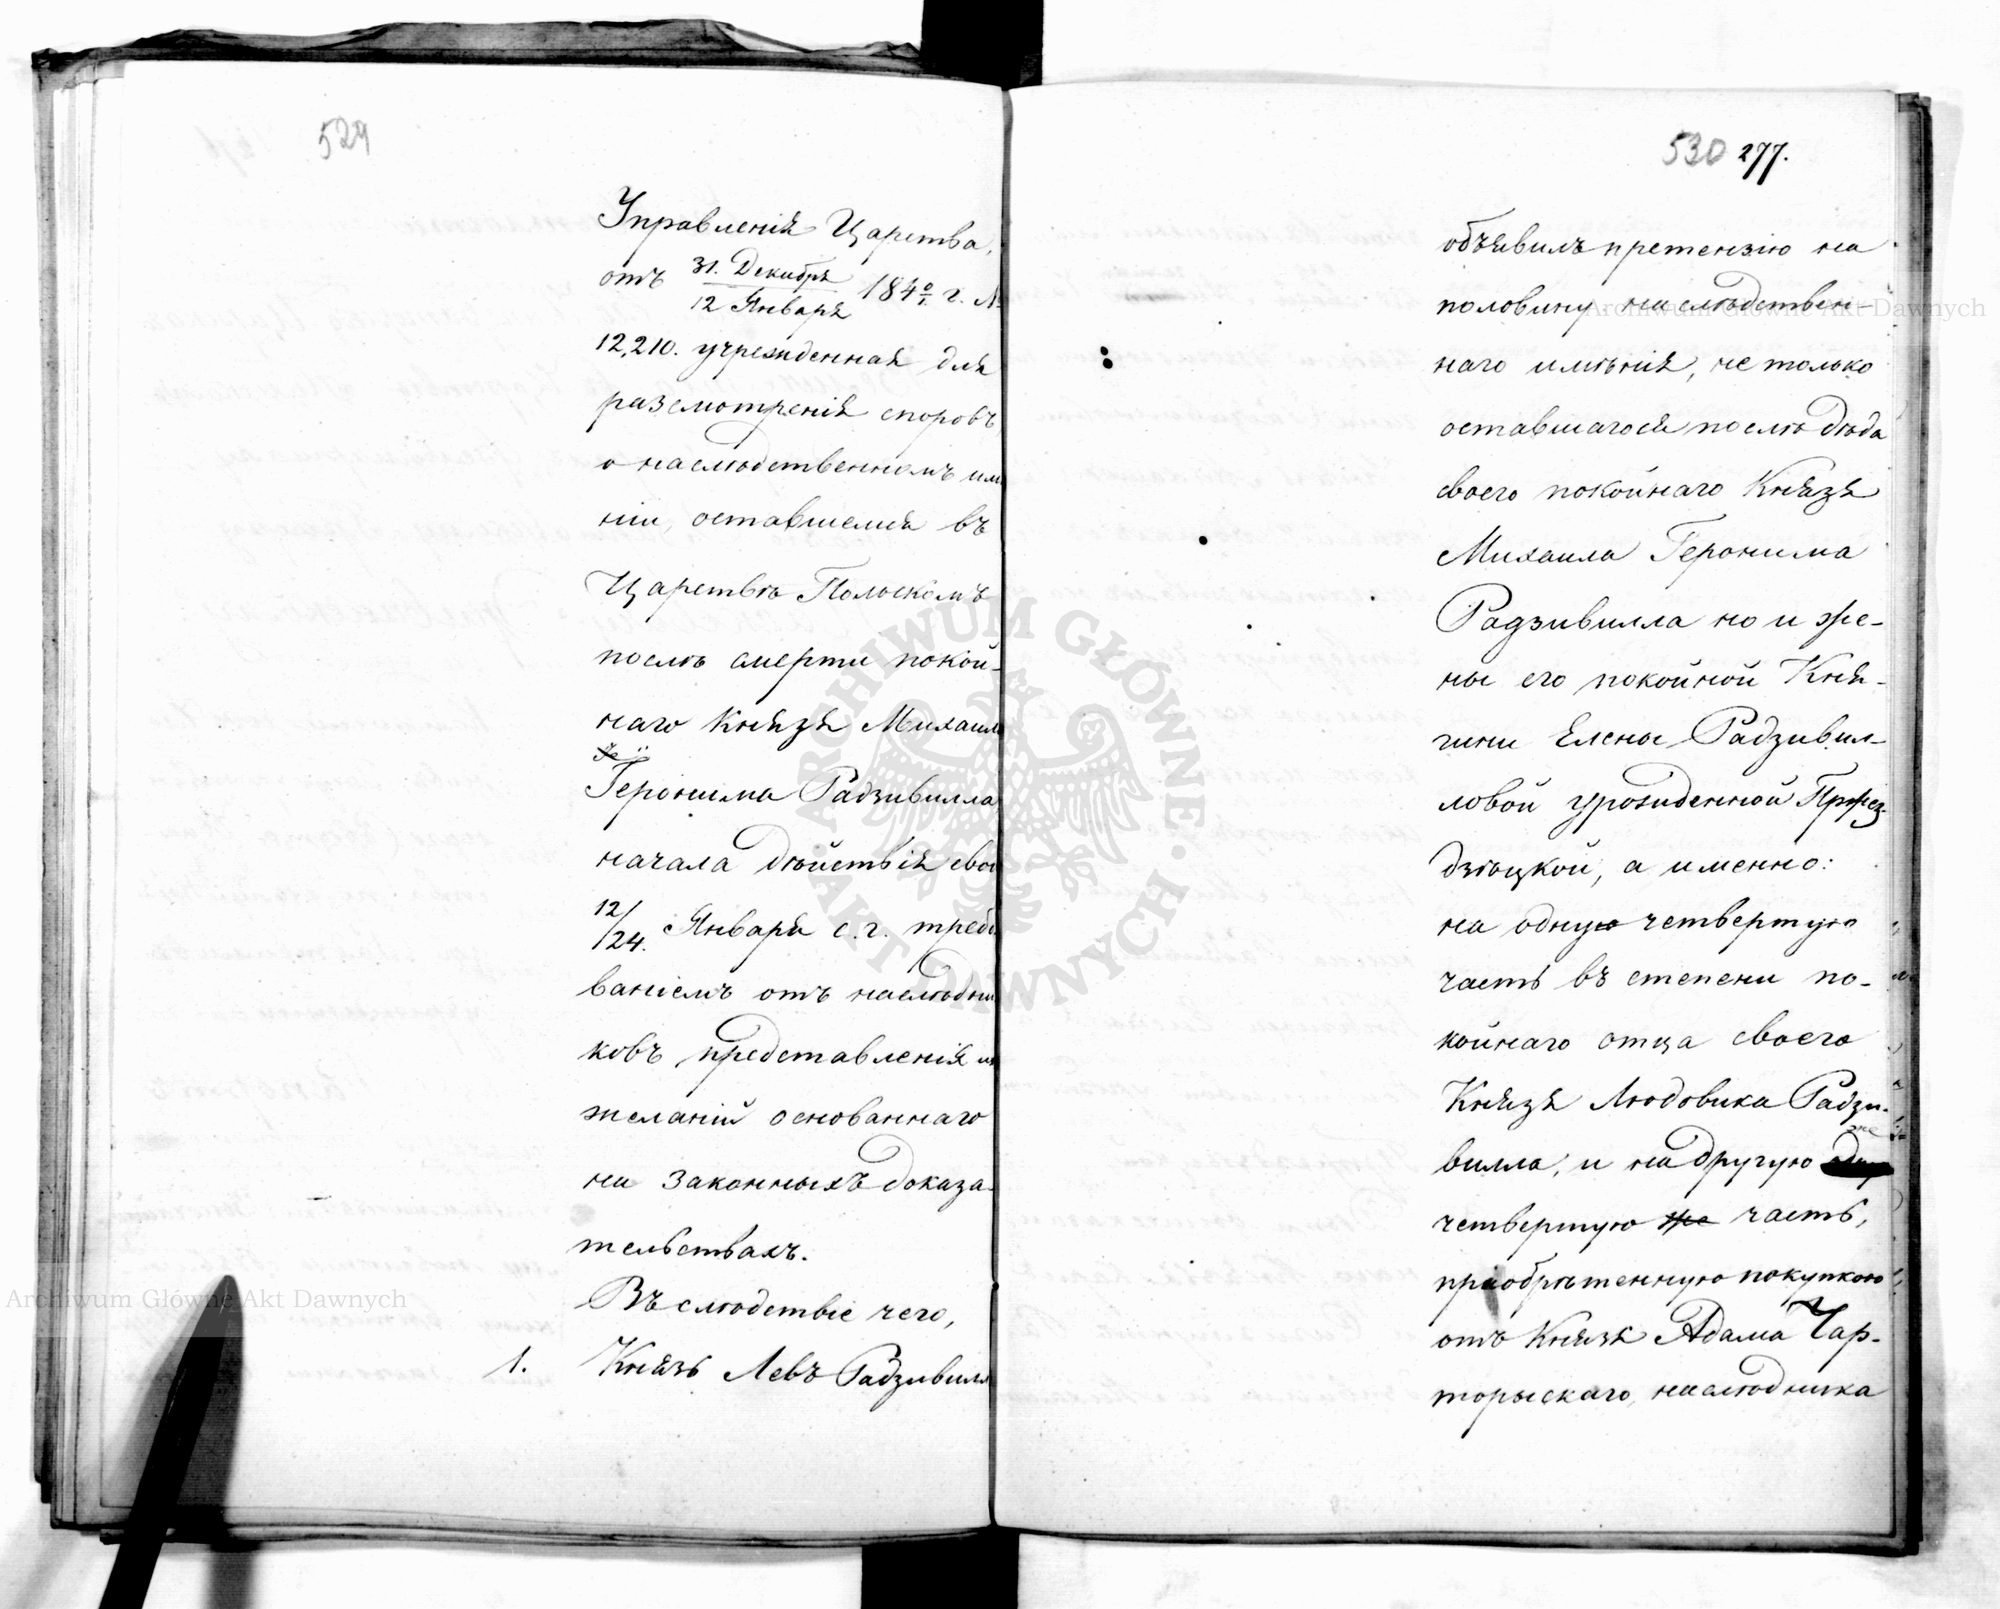 529
Управленія Царства,
отъ 31. Декабря / 12 Января 184 0/1 г. №
12,210. учрежденная для
разсмотренія споровъ
о наслѣдственномъ имѣ
ніи, оставшемся въ
Царствѣ Польскомъ
послѣ смерти покой-
наго Князя Михаила
Геронима Радзивилла
начала дѣйствія свои
12/24. Января с. г. требо
ваніемъ отъ наслѣдни
ковъ представленія
желаній основаннаго
на законныхъ доказа-
тельствахъ.
Въ слѣдствіе чего,
1. Князь Левъ Радзивилл
530 277.
объявилъ претензію на
половину наслѣдствен-
наго имѣнія, не только
оставшагося послѣ дѣда
своего покойнаго Князя
Михаила Геронима
Радзивилла но и же-
ны его покойной Кня-
гини Елены Радзивил-
ловой урожденной Пржез-
дзѣцкой, а именно:
на одную четвертую
часть въ степени по-
койнаго отца своего
Князя Людовика Радзи-
вилла, и на другую же
четвертую же часть,
пріобрѣтенную покупкою
отъ Князя Адама Чар-
торыскаго, наслѣдника
Archiwum Główne Akt Dawnych
Archiwum Główne Akt Dawnych
ARCHIWUM GŁÓWNE · AKT DAWNYCH ·